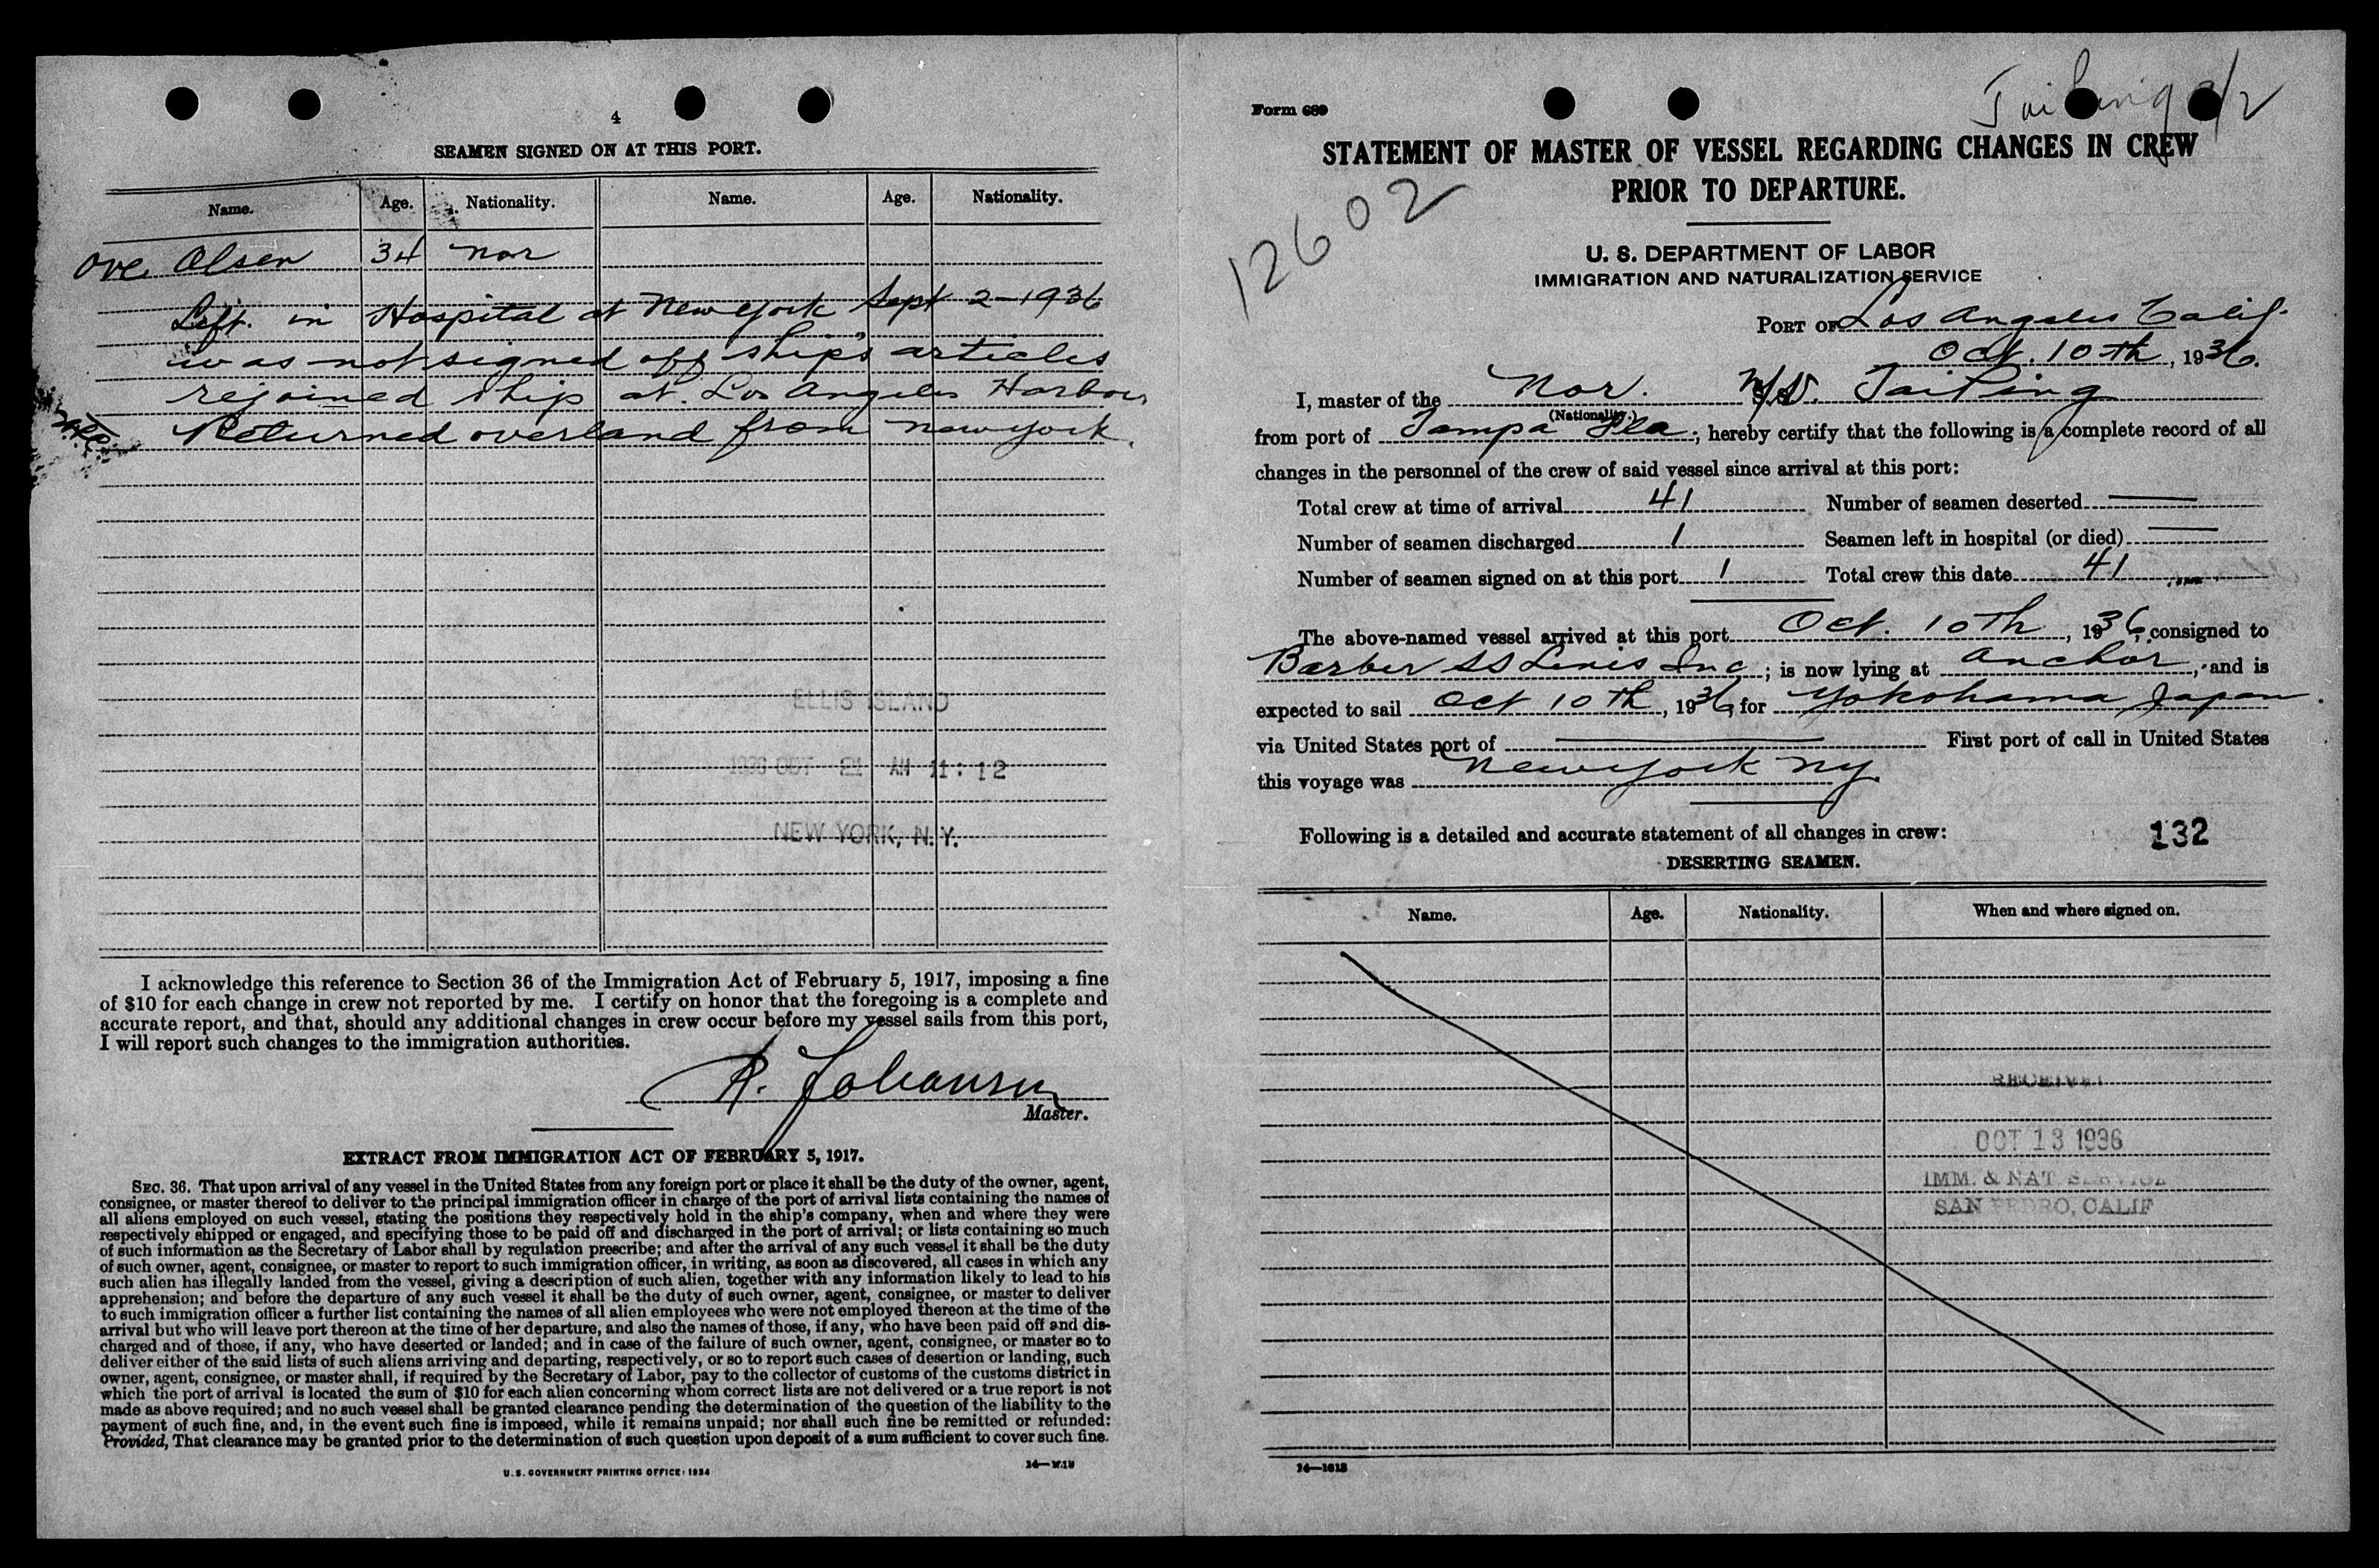 4
SEAMEN SIGNED ON AT THIS PORT.
Name. Age. Nationality. Name. Age. Nationality.
Ove Olsen 34 Nor
Left in Hospital at New York Sept 2-1936
was not signed off ship's articles
rejoined ship at Los Angeles Harbour
Returned overland from New York.
ELLIS ISLAND
1936 OCT 21 AM 11:12
NEW YORK, N.Y.
I acknowledge this reference to Section 36 of the Immigration Act of February 5, 1917, imposing a fine
of $10 for each change in crew not reported by me. I certify on honor that the foregoing is a complete and
accurate report, and that, should any additional changes in crew occur before my vessel sails from this port,
I will report such changes to the immigration authorities.
R. Johansen
Master.
EXTRACT FROM IMMIGRATION ACT OF FEBRUARY 5, 1917.
SEC. 36. That upon arrival of any vessel in the United States from any foreign port or place it shall be the duty of the owner, agent,
consignee, or master thereof to deliver to the principal immigration officer in charge of the port of arrival lists containing the names of
all aliens employed on such vessel, stating the positions they respectively hold in the ship's company, when and where they were
respectively shipped or engaged, and specifying those to be paid off and discharged in the port of arrival; or lists containing so much
of such information as the Secretary of Labor shall by regulation prescribe; and after the arrival of any such vessel it shall be the duty
of such owner, agent, consignee, or master to report to such immigration officer, in writing, as soon as discovered, all cases in which any
such alien has illegally landed from the vessel, giving a description of such alien, together with any information likely to lead to his
apprehension; and before the departure of any such vessel it shall be the duty of such owner, agent, consignee, or master to deliver
to such immigration officer a further list containing the names of all alien employees who were not employed thereon at the time of the
arrival but who will leave port thereon at the time of her departure, and also the names of those, if any, who have been paid off and dis-
charged and of those, if any, who have deserted or landed; and in case of the failure of such owner, agent, consignee, or master so to
deliver either of the said lists of such aliens arriving and departing, respectively, or so to report such cases of desertion or landing, such
owner, agent, consignee, or master shall, if required by the Secretary of Labor, pay to the collector of customs of the customs district in
which the port of arrival is located the sum of $10 for each alien concerning whom correct lists are not delivered or a true report is not
made as above required; and no such vessel shall be granted clearance pending the determination of the question of the liability to the
payment of such fine, and, in the event such fine is imposed, while it remains unpaid; nor shall such fine be remitted or refunded:
Provided, That clearance may be granted prior to the determination of such question upon deposit of a sum sufficient to cover such fine.
U. S. GOVERNMENT PRINTING OFFICE: 1934
Form 689
Tai Ping
STATEMENT OF MASTER OF VESSEL REGARDING CHANGES IN CREW
PRIOR TO DEPARTURE.
12602
U. S. DEPARTMENT OF LABOR
IMMIGRATION AND NATURALIZATION SERVICE
PORT OF Los Angeles Calif.
Oct. 10th, 1936.
I, master of the Nor. M/S. TaiPing
(Nationality.)
from port of Tampa Fla; hereby certify that the following is a complete record of all
changes in the personnel of the crew of said vessel since arrival at this port:
Total crew at time of arrival 41 Number of seamen deserted —
Number of seamen discharged 1 Seamen left in hospital (or died) —
Number of seamen signed on at this port 1 Total crew this date 41
The above-named vessel arrived at this port Oct. 10th, 1936, consigned to
Barber SS Lines Inc; is now lying at anchor, and is
expected to sail Oct 10th, 1936, for Yokohama Japan.
via United States port of — First port of call in United States
this voyage was New York NY.
Following is a detailed and accurate statement of all changes in crew:
132
DESERTING SEAMEN.
Name. Age. Nationality. When and where signed on.
RECEIVED
OCT 13 1936
IMM. & NAT. SERVICE
SAN PEDRO, CALIF
14—1613